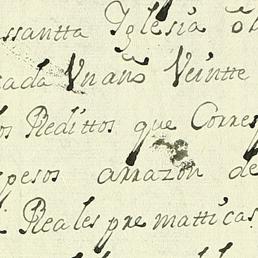 ssantta Iglesia
cada Vn año Veintte
los Redittos que Corres
pesos arrazon de
i Reales prematticas